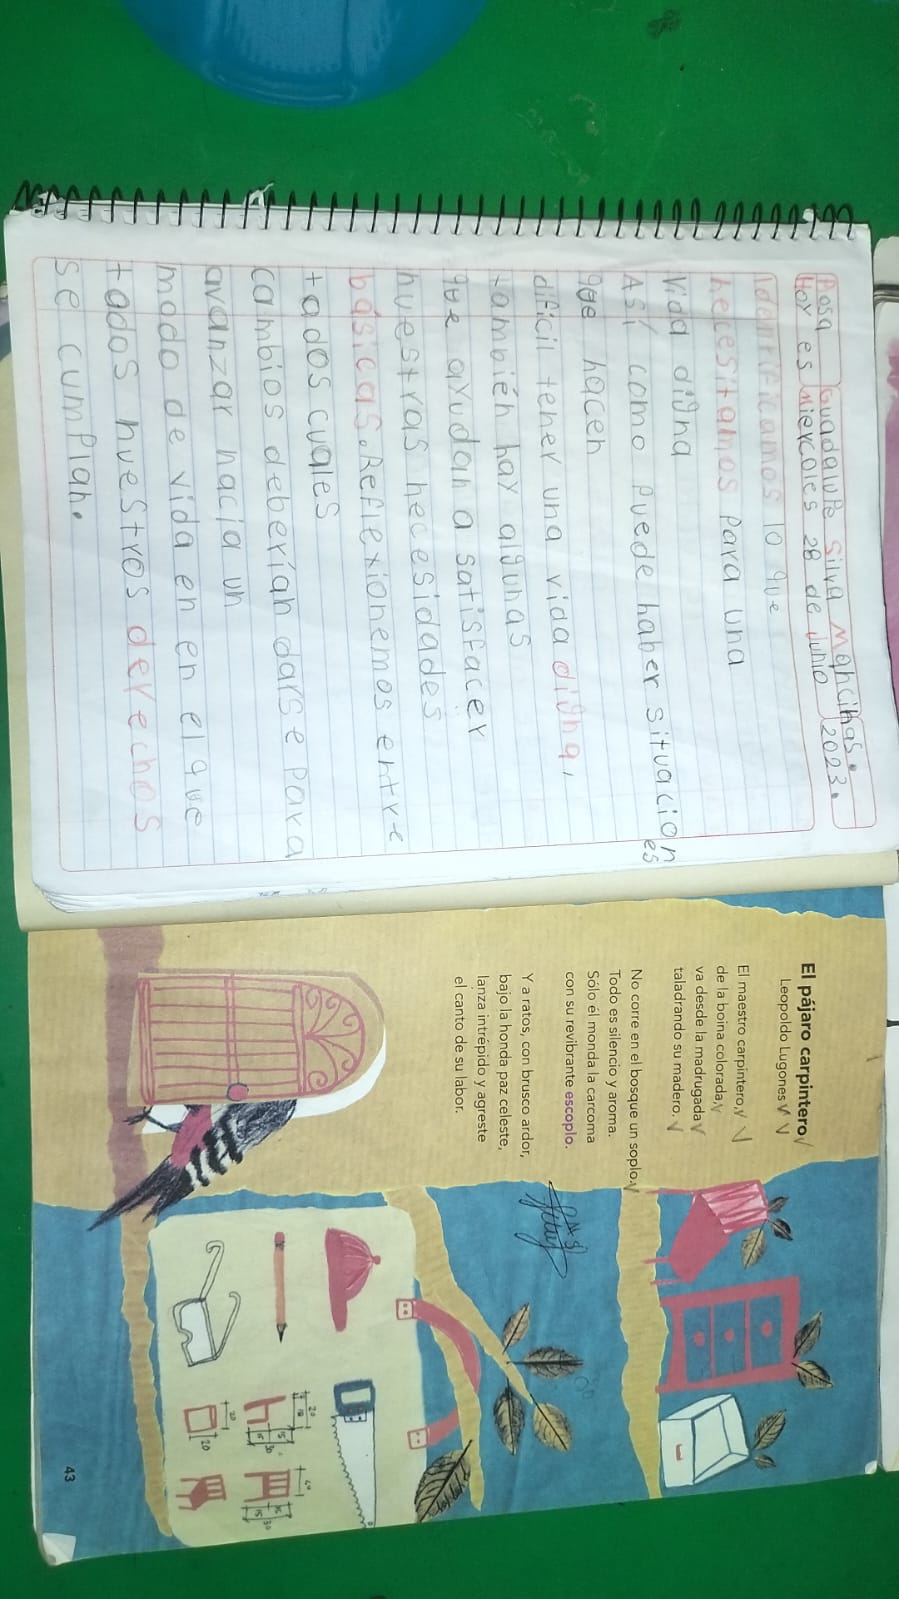 Rosa Guadalupe Silva Mancinas.
Hoy es Miercoles 28 de Junio 2023.
Identificamos lo que
necesitamos para una
Vida digna
Así como puede haber situaciones
que hacen
dificil tener una vida digna,
también hay algunas
que ayudan a satisfacer
nuestras necesidades
básicas. Reflexionemos entre
tados cuales
cambios deberían darse para
avanzar hacia un
modo de vida en en el que
tados nuestros derechos
se cumplan.
El pájaro carpintero
Leopoldo Lugones
El maestro carpintero,
de la boina colorada,
va desde la madrugada
taladrando su madero.
No corre en el bosque un soplo.
Todo es silencio y aroma.
Sólo él monda la carcoma
con su revibrante escoplo.
Y a ratos, con brusco ardor,
bajo la honda paz celeste,
lanza intrépido y agreste
el canto de su labor.
43